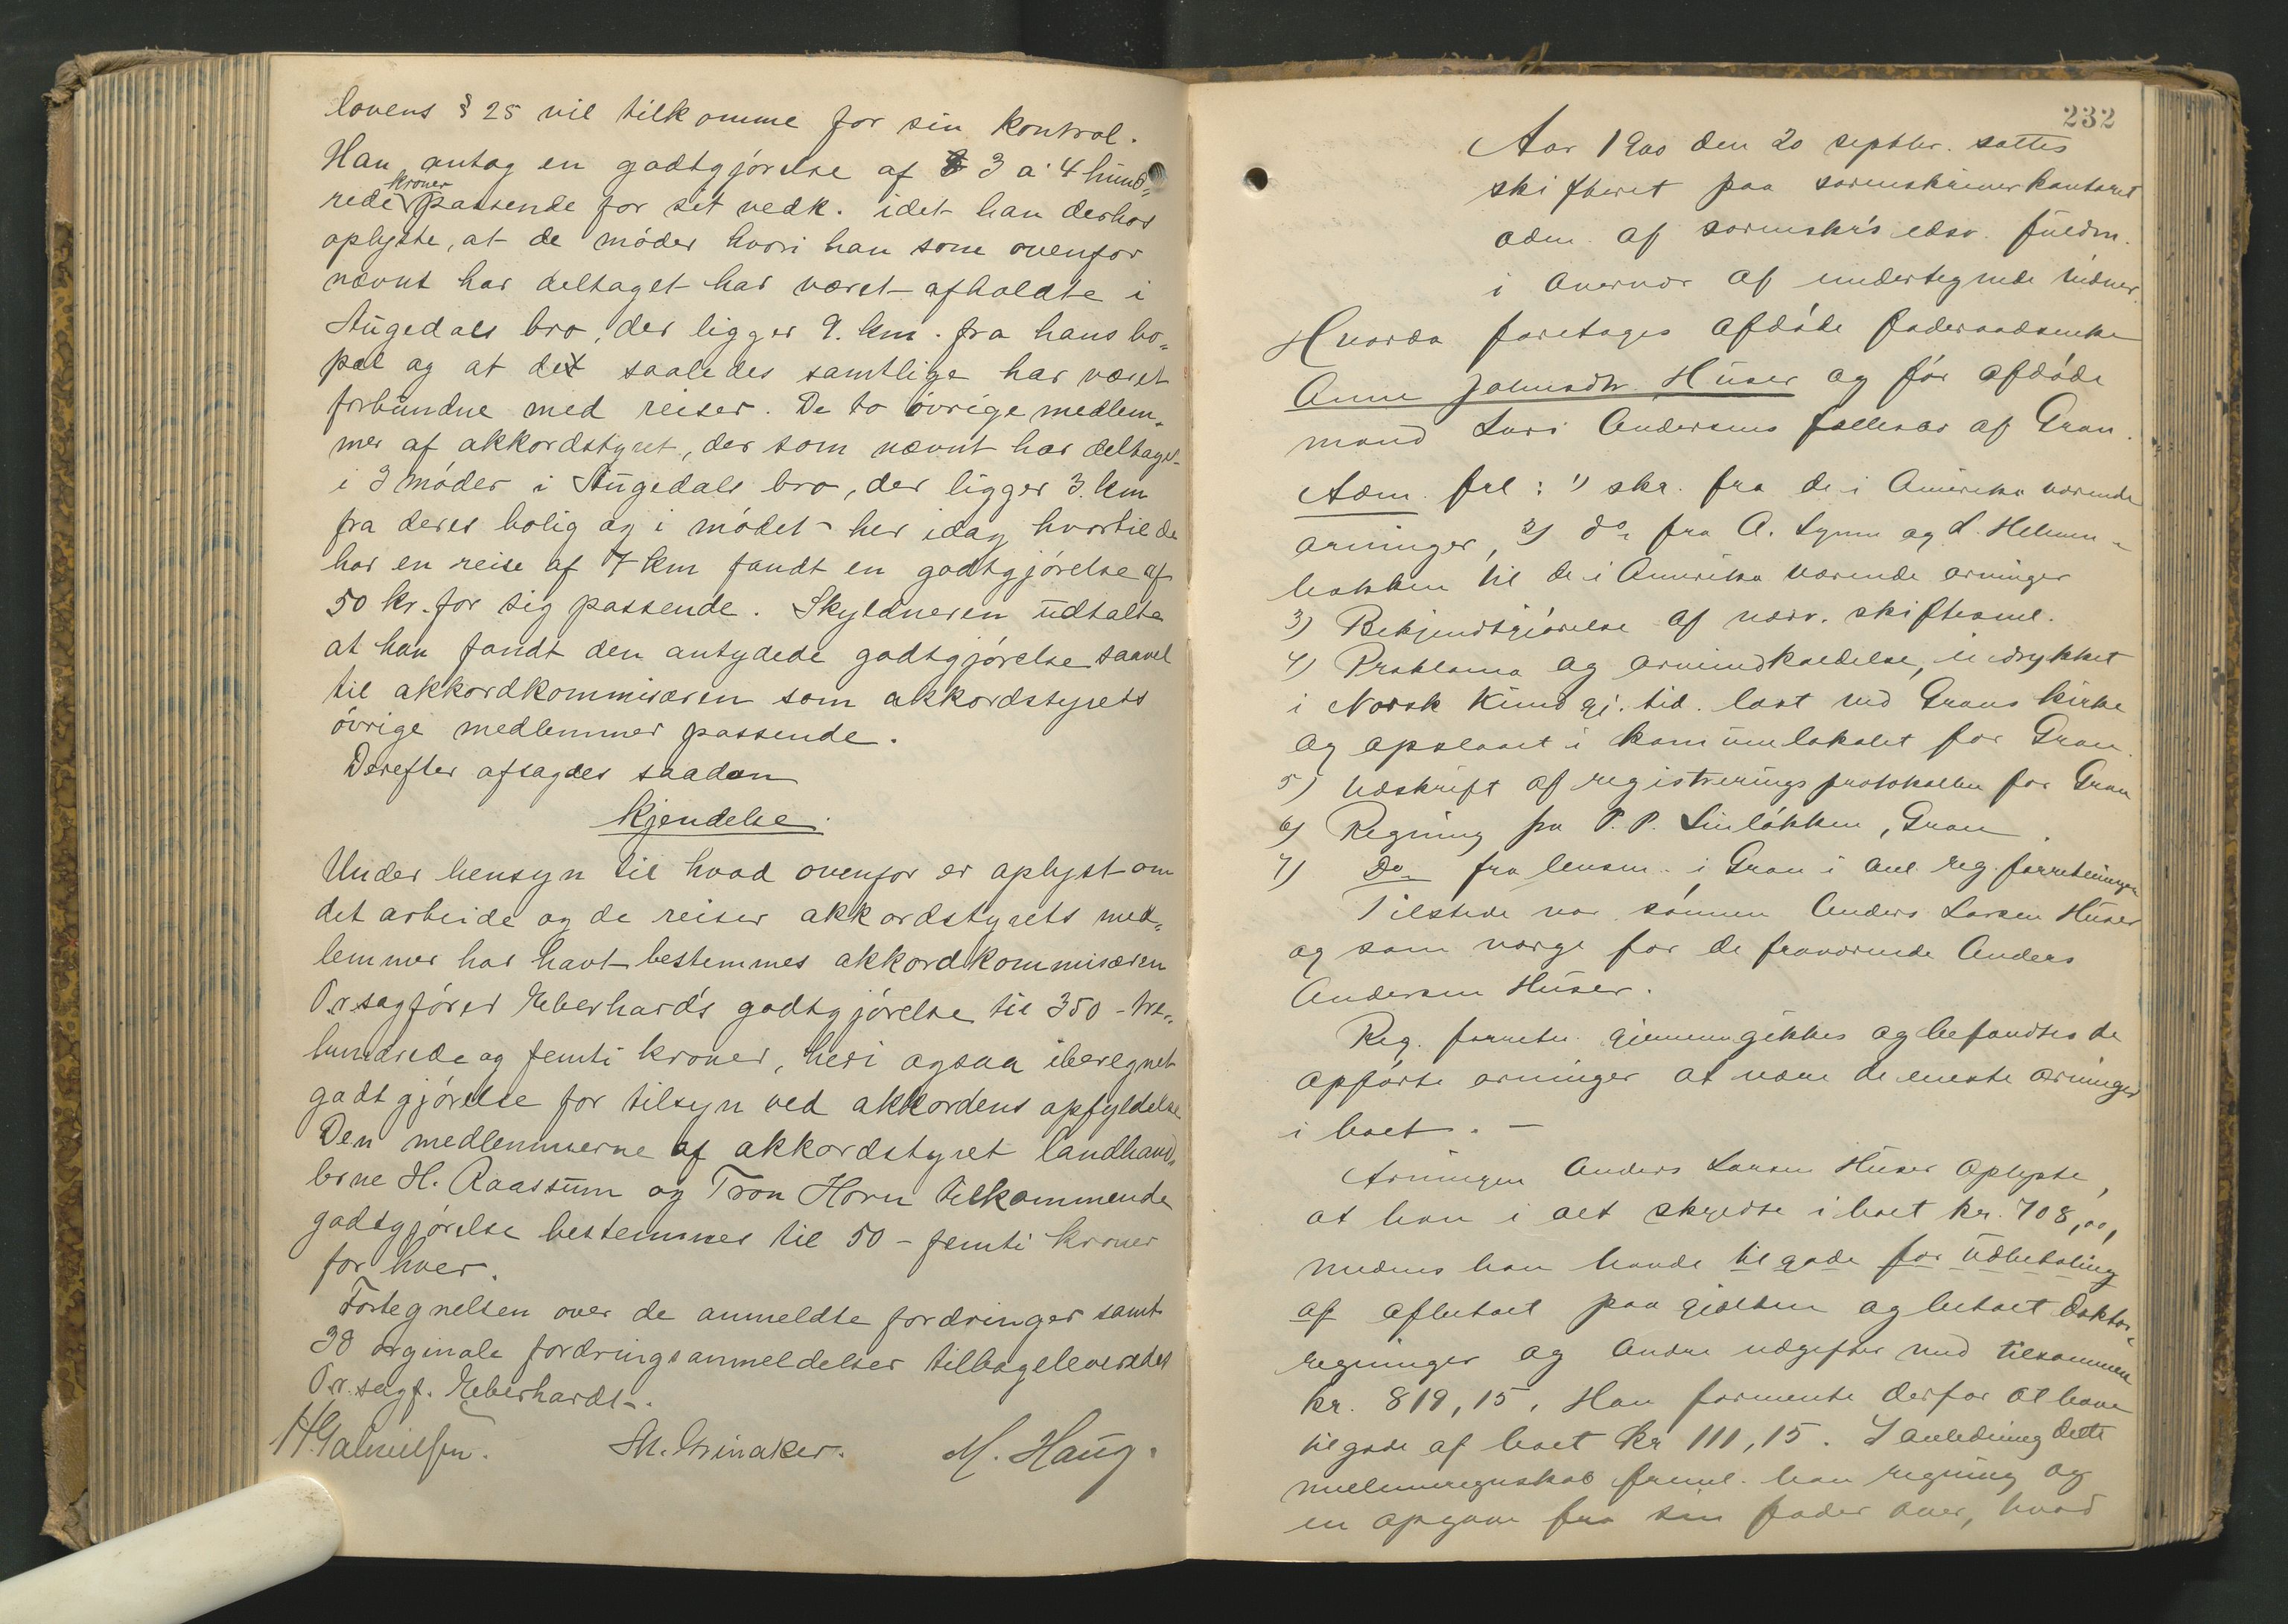 lovens § 25 vil tilkomme for sin kontrol.
Han antog en godtgjörelse af 3 a 4 hund-
rede kroner passende for sit vedk. idet han derhos
oplyste, at de möder hvori han som ovenfor
nævnt har deltaget har været afholdte i
Augedals bro, der ligger 9. km. fra hans bo-
pæl og at det saaledes samtlige har været
forbundne med reiser. De to övrige medlem-
mer af akkordstyret, der som nævnt har deltaget
i 3 möder i Augedals bro, der ligger 3. km
fra deres bolig og i mödet her idag hvortil de
har en reise af 7 km fandt en godtgjörelse af
50 kr. for sig passende. Skyldneren udtalte
at han fandt den antydede godtgjörelse saavel
til akkordkommisæren som akkordstyrets
övrige medlemmer passende.
Derefter afsagdes saadan
Kjendelse.
Under hensyn til hvad ovenfor er oplyst om
det arbeide og de reiser akkordstyrets med-
lemmer har havt bestemmes akkordkommisæren
O.r.sagförer Eberhard's godtgjörelse til 350 - tre-
hundrede og femti kroner, heri ogsaa iberegnet
godtgjörelse for tilsyn ved akkordens opfyldelse
Den medlemmerne af akkordstyret landhand-
lerne H. Raassum og Tron Horn tilkommende
godtgjörelse bestemmes til 50 - femti kroner
for hver.
Fortegnelsen over de anmeldte fordringer samt
38 orginale fordringsanmeldelser tilbageleveredes
O.r.sagf. Eberhardt.
M. Haug.
232
Aar 1900 den 20 septbr. sattes
skifteret paa sorenskriverkontoret
adm. af sorenskr's edsv. fuldm.
i overvær af undertegnede vidner.
Hvorda foretoges afdöde föderaadsenke
Anne Johnsdtr. Huser og för afdöde
mand Lars Andersens fællesbo af Gran.
Adm. frl: 1) skr. fra de i Amerika værende
arvinger, 2) do fra A. Lynne og L.
til de i Amerika værende arvinger
3) Bekjendtgjörelse af nærv. skiftesaml.
4) Proklama og arvindkaldelse, indrykket
i Norsk Kundgj. tid. læst ved Grans kirke
og opslaaet i kommunelokalet for Gran.
5) Udskrift af registreringsprotokollen for Gran
6) Regning fra P. P. Linlökken, Gran.
7) Do fra lensm. i Gran i anl. reg. forretningen
Tilstede var sönnen Anders Larsen Huser
og som værge for de fraværende Anders
Andersen Huser.
Reg. forretn. gjennemgikkes og befandtes de
opförte arvinger at være de eneste arvinger
i boet. -
Arvingen Anders Larsen Huser oplyste,
at han i alt skyldte i boet kr. 708,00,
medens han havde tilgode for udbetaling
af afbetalt paa gjælden og betalt doktor-
regninger og andre udgifter med tilsammen
kr. 819,15. Han formente derfor at have
tilgode af boet kr 111,15. I anledning dette
mellemregnskab freml. han regning og
en opgave fra sin fader over, hvad